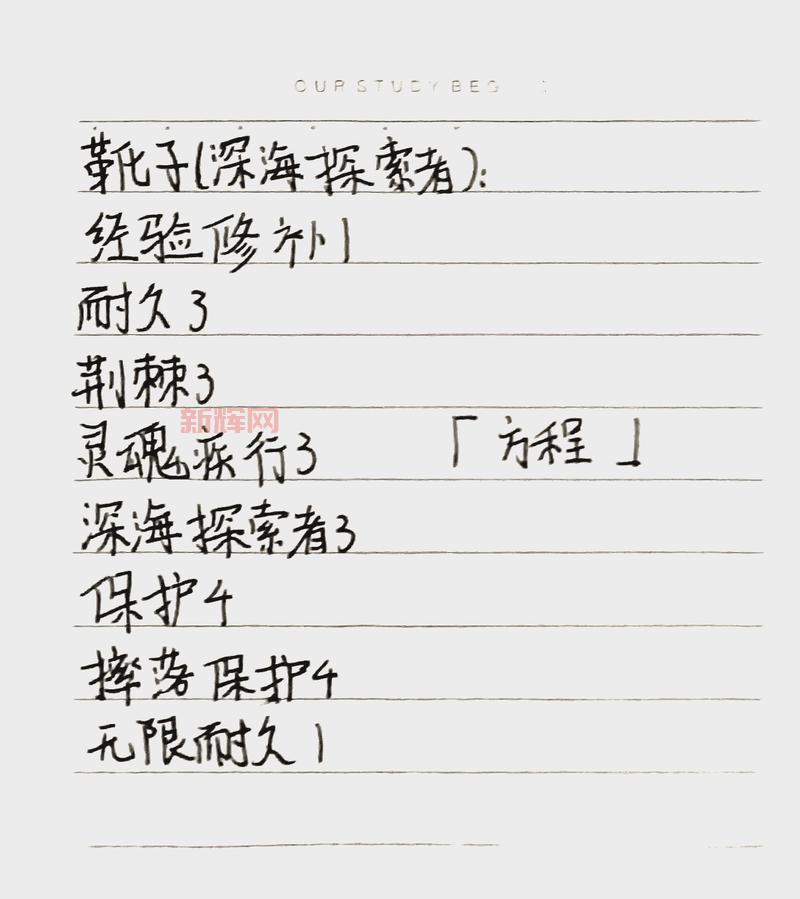 OUR STUDY BEG
靴子(深海探索者):
经验修补1
耐久3
荆棘3
新辉网
灵魂疾行3 「方程」
深海探索者3
保护4
摔落保护4
无限耐久1